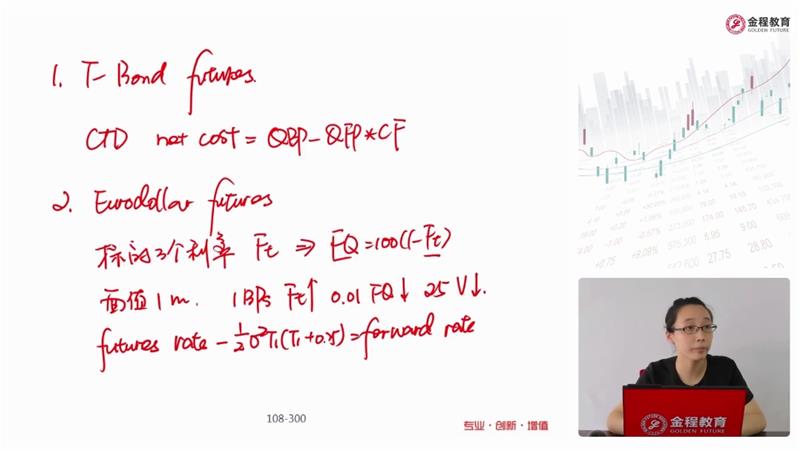 金程教育
GOLDEN FUTURE
1. T-Bond futures.
CTD net cost = QBP - QFP*CF
2. Eurodollar futures
标的3个利率 Ft ⇒ FQ=100(1-Ft)
面值1m. 1BPs Ft↑ 0.01 FQ↓ 25 V↓.
futures rate - 1/2σ²T₁(T₁+0.25)=forward rate
108-300
专业·创新·增值
金程教育
GOLDEN FUTURE